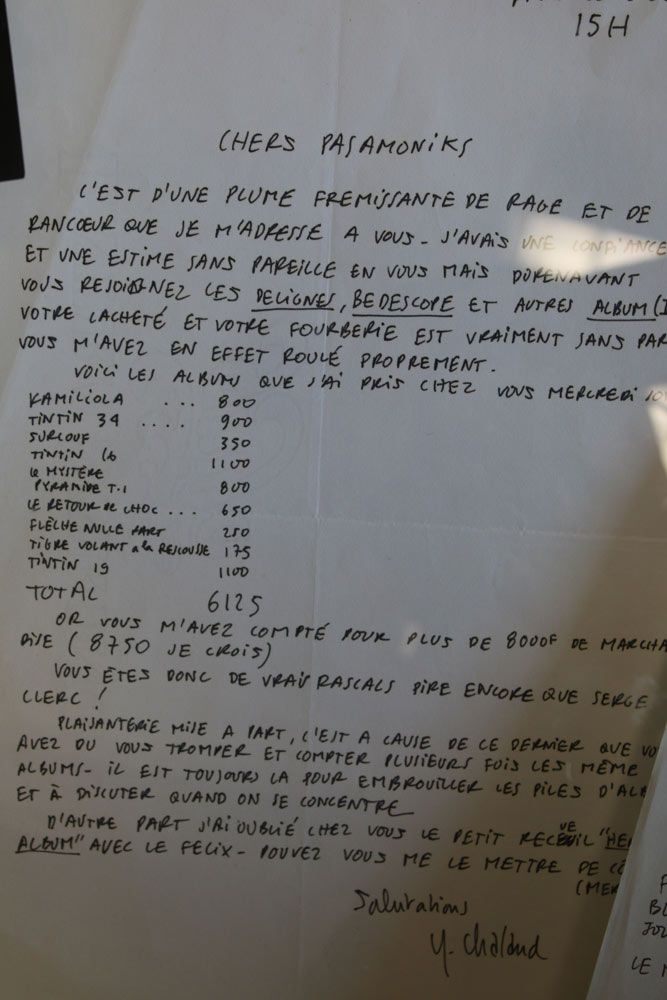 15H
CHERS PASAMONIKS
C'EST D'UNE PLUME FREMISSANTE DE RAGE ET DE
RANCŒUR QUE JE M'ADRESSE A VOUS - J'AVAIS UNE CONFIANCE
ET UNE ESTIME SANS PAREILLE EN VOUS MAIS DORENAVANT
VOUS REJOIGNEZ LES DELIGNES, BEDESCOPE ET AUTRES ALBUM
VOTRE LACHETÉ ET VOTRE FOURBERIE EST VRAIMENT SANS PAR
VOUS M'AVEZ EN EFFET ROULÉ PROPREMENT.
VOICI LES ALBUMS QUE J'AI PRIS CHEZ VOUS MERCREDI
KAMILIOLA ... 800
TINTIN 34 .... 900
SURCOUF 350
TINTIN 16 1100
LE MYSTÈRE
PYRAMIDE T.1 800
LE RETOUR DE CHOC ... 650
FLÈCHE NULLE PART 250
TIGRE VOLANT à la RESCOUSSE 175
TINTIN 19 1100
TOTAL 6125
OR VOUS M'AVEZ COMPTÉ POUR PLUS DE 8000F DE MARCHA
DISE (8750 JE CROIS)
VOUS ÊTES DONC DE VRAIS RASCALS PIRE ENCORE QUE SERGE
CLERC !
PLAISANTERIE MISE A PART, C'EST A CAUSE DE CE DERNIER QUE VO
AVEZ DU VOUS TROMPER ET COMPTER PLUSIEURS FOIS LES MÊME
ALBUMS - IL EST TOUJOURS LA POUR EMBROUILLER LES PILES D'ALB
ET À DISCUTER QUAND ON SE CONCENTRE
D'AUTRE PART J'AI OUBLIÉ CHEZ VOUS LE PETIT RECEUIL "HE
ALBUM" AVEC LE FELIX - POUVEZ VOUS ME LE METTRE DE CÔ
(MER
Salutations
Y. Chaland
LE